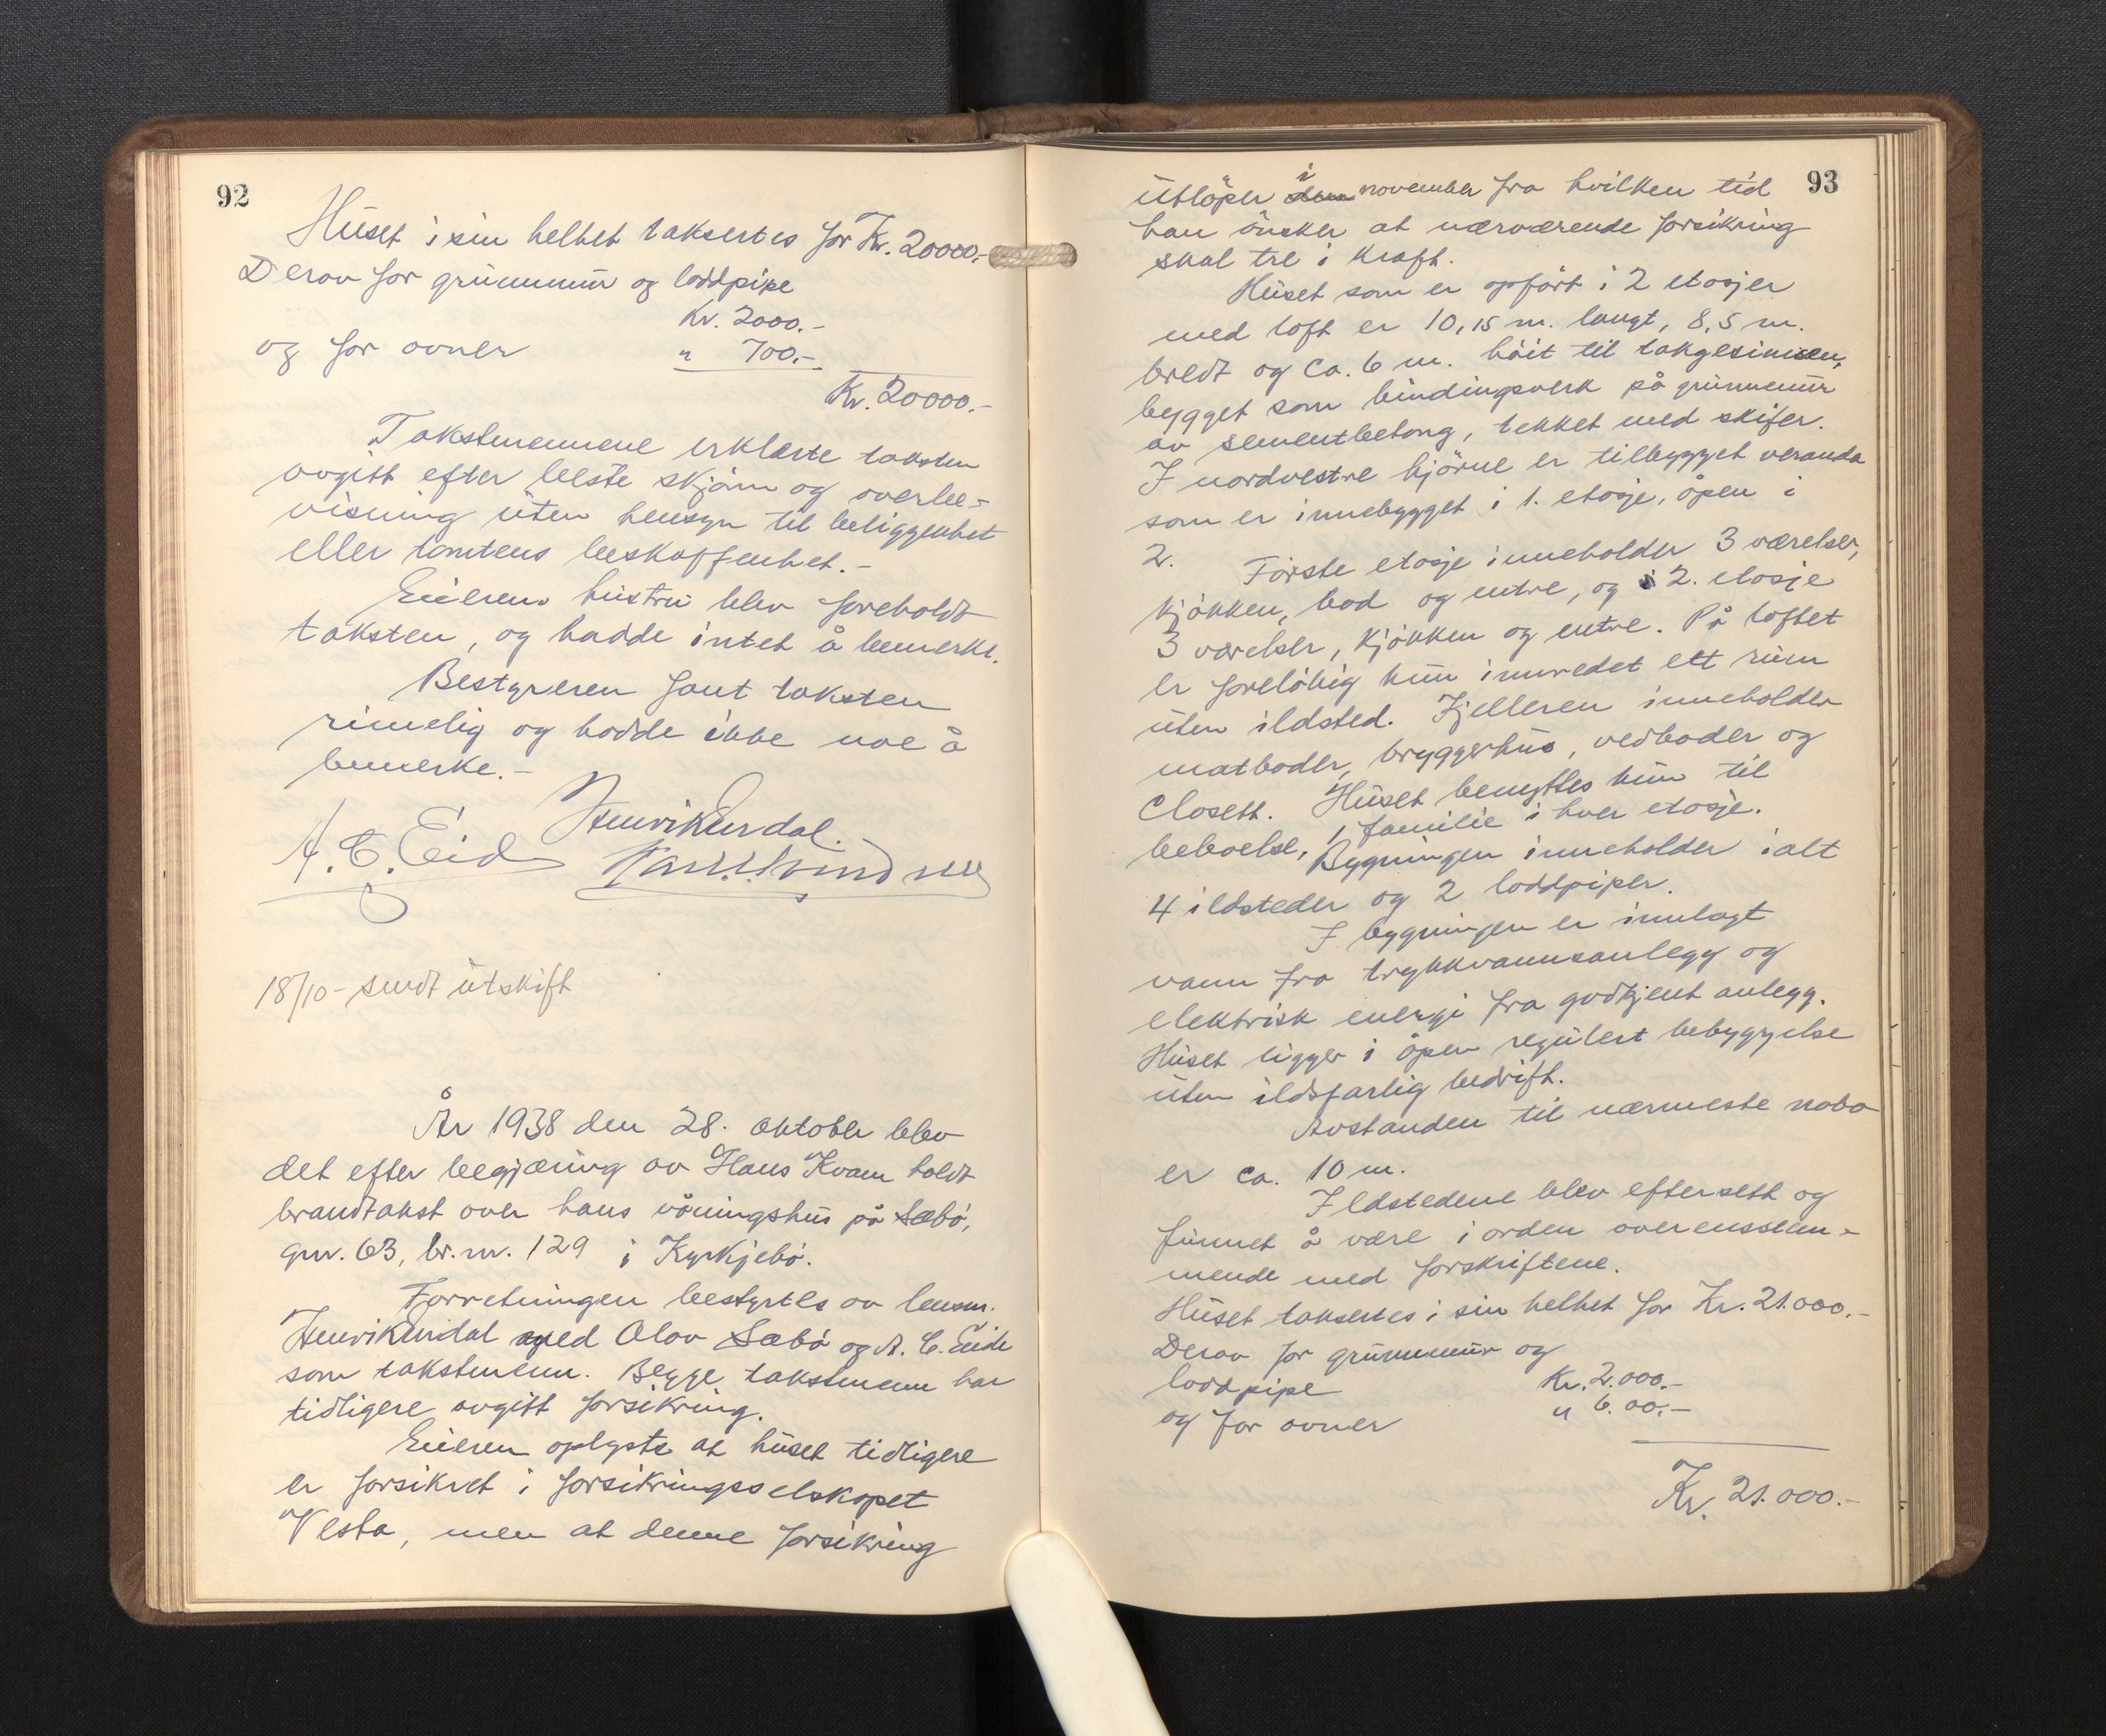 92
Huset i sin helhet taksertes for Kr. 20000.-
Derav for grunnmur og loddpipe
Kr. 2000.-
og for ovner " 700.-
Kr. 20000.-
Takstmennene erklærte taksten
avgitt efter beste skjønn og overbe-
visning uten hensyn til beliggenhet
eller tomtens beskaffenhet.-
Eierens hustru blev foreholdt
taksten, og hadde intet å bemerke.
Bestyreren fant taksten
rimelig og hadde ikke noe å
bemerke.-
Henrikendal.
A. C. Eide
18/10 - sendt utskift
År 1938 den 28. oktober blev
det efter begjæring av Hans Kvam holdt
brandtakst over hans våningshus på Sæbö,
gnr. 63, br. nr. 129 i Kyrkjebö.
Forretningen bestyrtes av lensm.
Henrikendal med Olav Sæbö og A. C. Eide
som takstmenn. Begge takstmenn har
tidligere avgitt forsikring.
Eieren oplyste at huset tidligere
er forsikret i forsikringsselskapet
Vesta, men at denne forsikring
93
utlöper i november fra hvilken tid
han önsker at nærværende forsikring
skal tre i kraft.
Huset som er opfört i 2 etasjer
med loft er 10,15 m. langt, 8,5 m.
bredt og ca. 6 m. höit til takgesimsen,
bygget som bindingsverk på grunnmur
av sementbetong, tekket med skifer.
I nordvestre hjörne er tilbygget veranda
som er innebygget i 1. etasje, åpen i
2.
Förste etasje inneholder 3 værelser,
kjökken, bod og entre, og i 2. etasje
3 værelser, kjökken og entre. På loftet
er foreløbig kun innredet ett rum
uten ildsted. Kjelleren inneholder
matboder, bryggerhus, vedboder og
closett. Huset benyttes kun til
beboelse, 1 familie i hver etasje.
Bygningen inneholder ialt
4 ildsteder og 2 loddpiper.
I bygningen er innlagt
vann fra trykkvannsanlegg og
elektrisk energi fra godkjent anlegg.
Huset ligger i åpen regulert bebyggelse
uten ildsfarlig bedrift.
Avstanden til nærmeste nabo
er ca. 10 m.
Ildstedene blev eftersett og
funnet å være i orden overensstem-
mende med forskriftene.
Huset taksertes i sin helhet for Kr. 21.000.-
Derav for grunnmur og
loddpipe Kr. 2.000.-
og for ovner " 6.00.-
Kr. 21.000.-